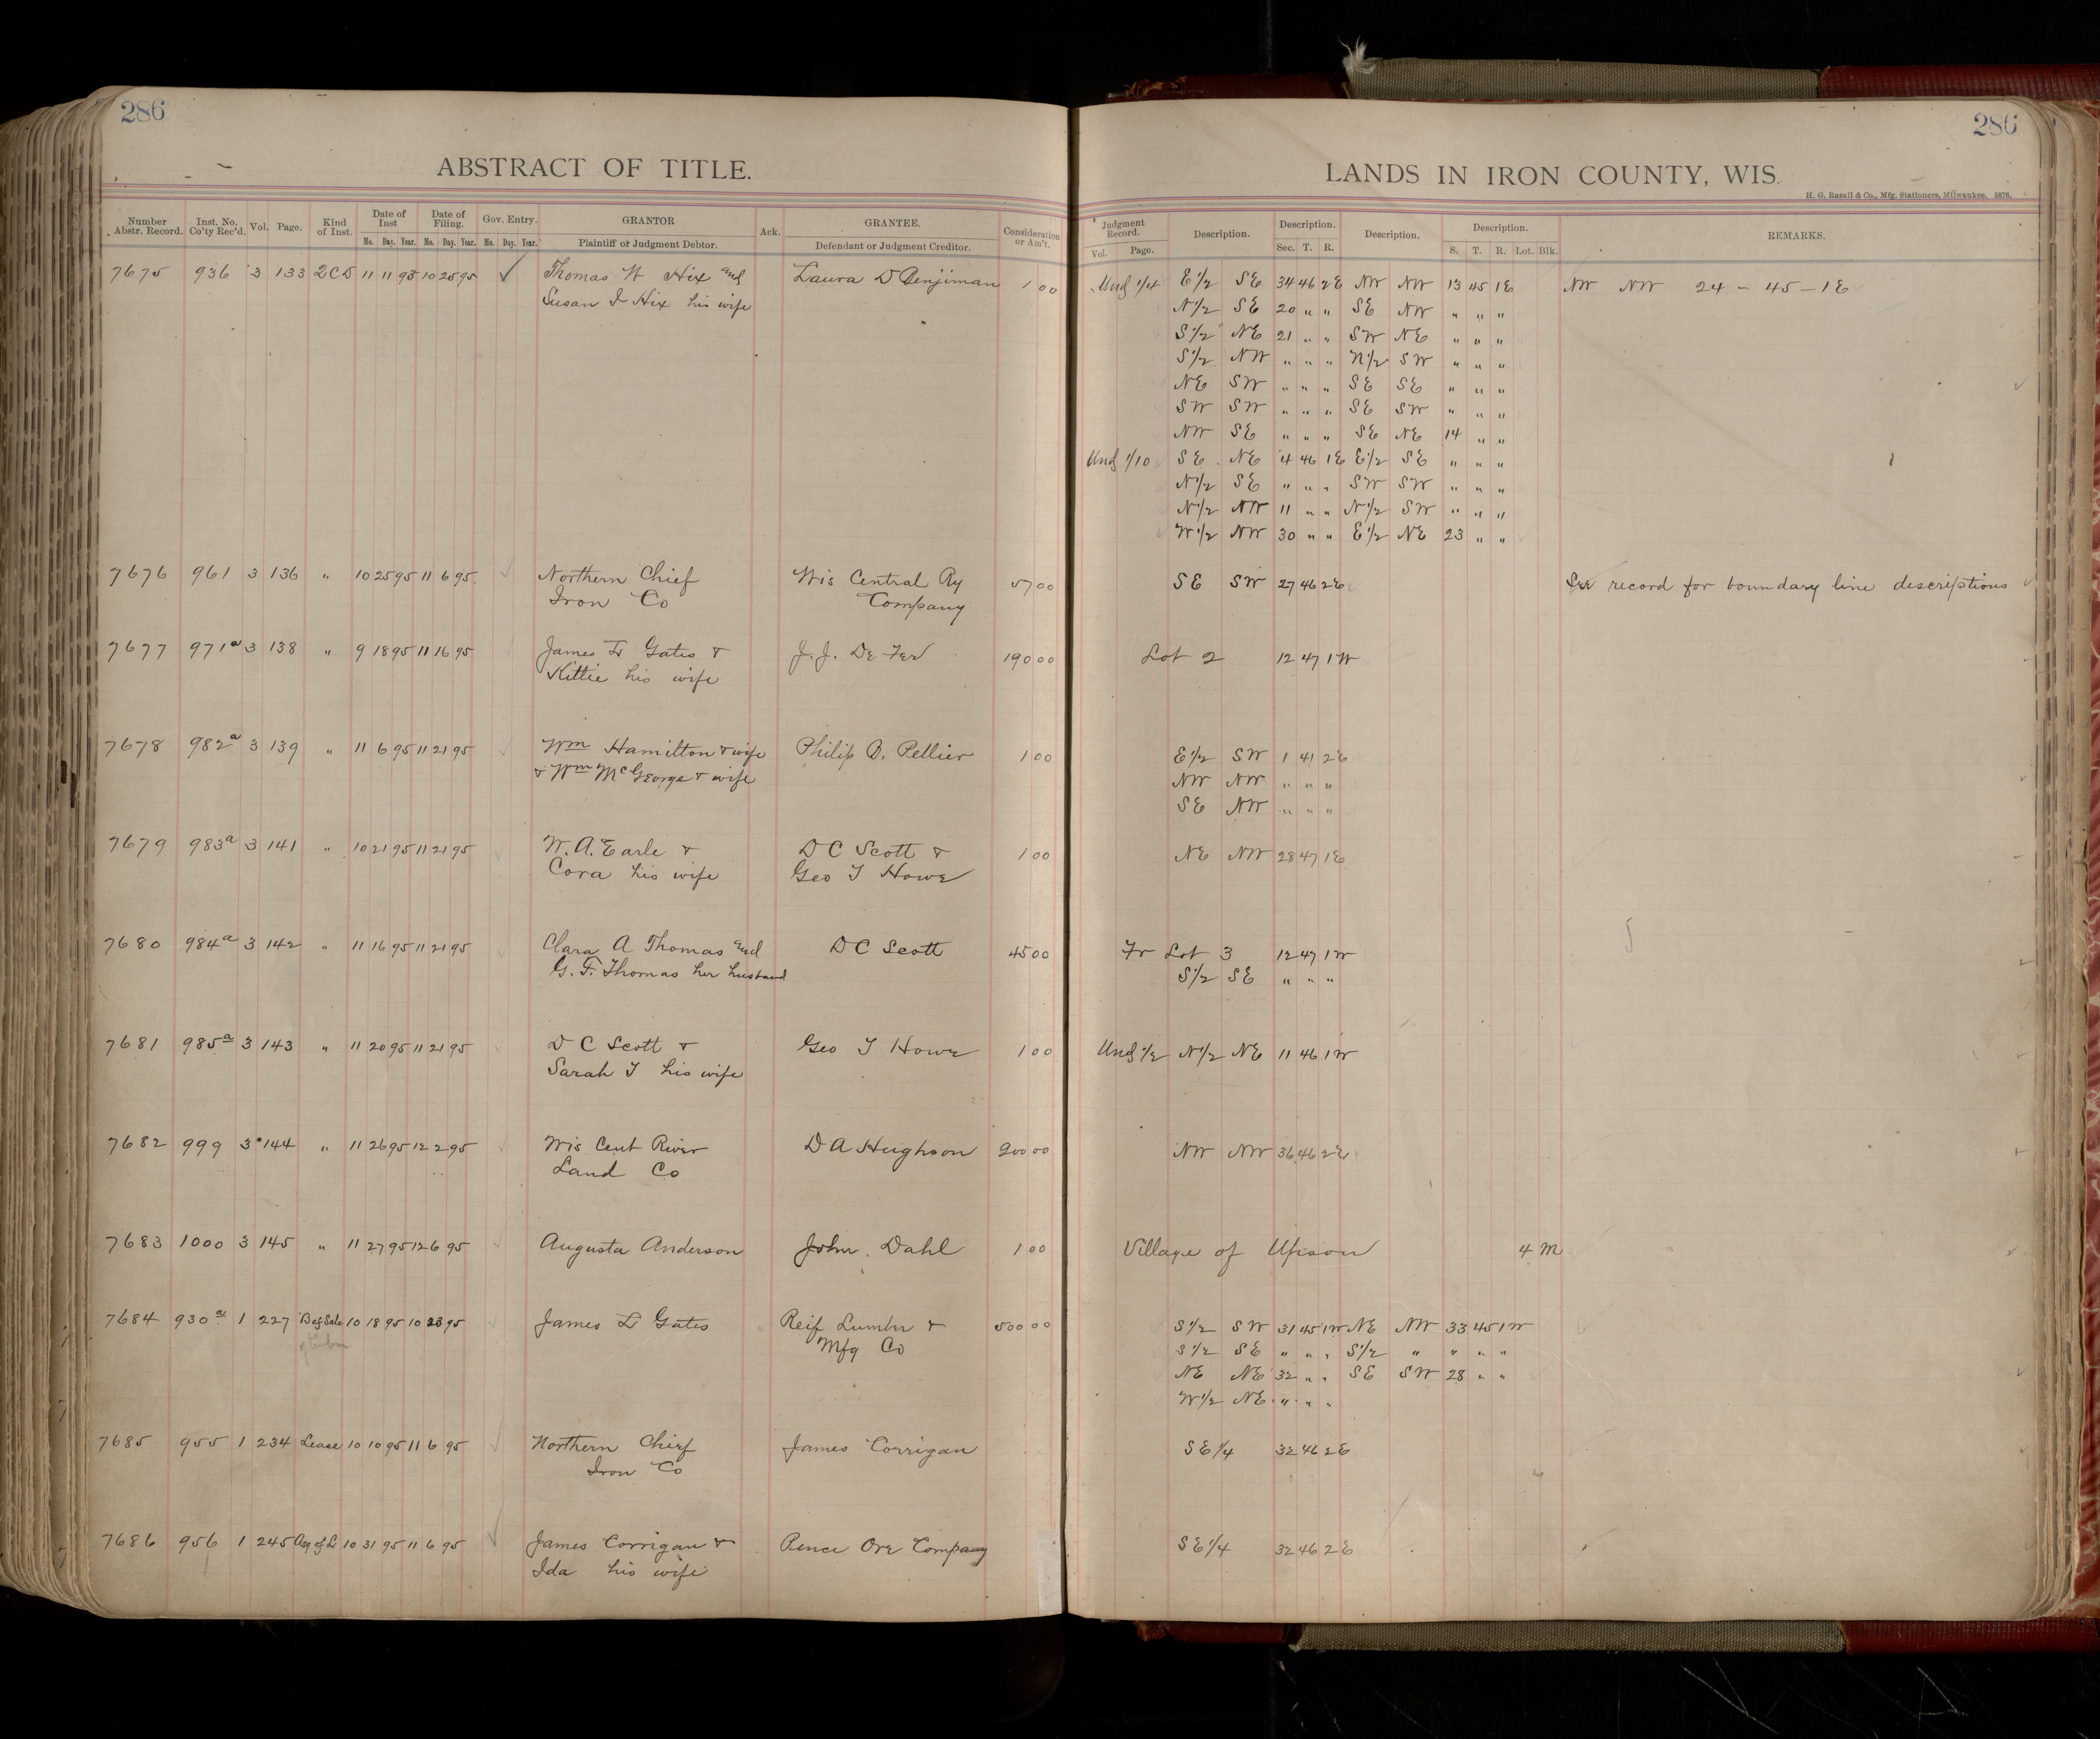 286
286
ABSTRACT OF TITLE.
LANDS IN IRON COUNTY, WIS.
H. G. Razall & Co., Mfg. Stationers, Milwaukee. 5876.
Number Abstr. Record. Inst. No. Co'ty Rec'd. Vol. Page. Kind of Inst. Date of Inst Mo. Day. Year. Date of Filing. Mo. Day. Year. Gov. Entry. Mo. Day. Year. GRANTOR Plaintiff or Judgment Debtor. Ack. GRANTEE. Defendant or Judgment Creditor. Consideration or Am't. Judgment Record. Vol. Page. Description. Description. Sec. T. R. Description. Description. S. T. R. Lot. Blk. REMARKS.
7675 936 3 133 2CD 11 11 93 10 25 95 Thomas H Hix and Laura D Benjiman 1 00 Und 1/4 E 1/2 SE 34 46 2E NW NW 13 45 1E NW NW 24 - 45 - 1E
Susan I Hix his wife N 1/2 SE 20 " " SE NW " " "
S 1/2 NE 21 " " SW NE " " "
S 1/2 NW " " " N 1/2 SW " " "
NE SW " " " SE SE " " "
SW SW " " " SE SW " " "
NW SE " " " SE NE 14 " "
Und 1/10 SE NE 4 46 1E E 1/2 SE " " "
N 1/2 SE " " " SW SW " " "
N 1/2 NW 11 " " N 1/2 SW " " "
W 1/2 NW 30 " " E 1/2 NE 23 " "
7676 961 3 136 " 10 25 95 11 6 95 Northern Chief Wis Central Ry 57 00 SE SW 27 46 2E See record for boundary line descriptions
Iron Co Company
7677 971a 3 138 " 9 18 95 11 16 95 James L Gates & J. J. De Fer 190 00 Lot 2 12 47 1W
Kittie his wife
7678 982a 3 139 " 11 6 95 11 21 95 Wm Hamilton & wife Philip B. Pellier 1 00 E 1/2 SW 1 41 2E
& Wm McGeorge & wife NW NW " " "
SE NW " " "
7679 983a 3 141 " 10 21 95 11 21 95 W. A. Earle & D C Scott & 1 00 NE NW 28 47 1E
Cora his wife Geo T Howe
7680 984a 3 142 " 11 16 95 11 21 95 Clara A Thomas and D C Scott 45 00 Fr Lot 3 12 47 1W
G. F. Thomas her husband S 1/2 SE " " "
7681 985a 3 143 " 11 20 95 11 21 95 D C Scott & Geo T Howe 1 00 Und 1/2 N 1/2 NE 11 46 1W
Sarah T his wife
7682 999 3 144 " 11 26 95 12 2 95 Wis Cent River D A Hughson 200 00 NW NW 36 46 2E
Land Co
7683 1000 3 145 " 11 27 95 12 6 95 Augusta Anderson John Dahl 1 00 Village of Upson 4 M
7684 930a 1 227 B of Sale 10 18 95 10 23 95 James L Gates Reif Lumber & 500 00 S 1/2 SW 31 45 1W NE NW 33 45 1W
Mfg Co S 1/2 SE " " " S 1/2 " " " "
NE NE 32 " " SE SW 28 " "
W 1/2 NE " " "
7685 955 1 234 Lease 10 10 95 11 6 95 Northern Chief James Corrigan SE 1/4 32 46 2E
Iron Co
7686 956 1 245 Asg of L 10 31 95 11 6 95 James Corrigan & Pence Ore Company SE 1/4 32 46 2E
Ida his wife